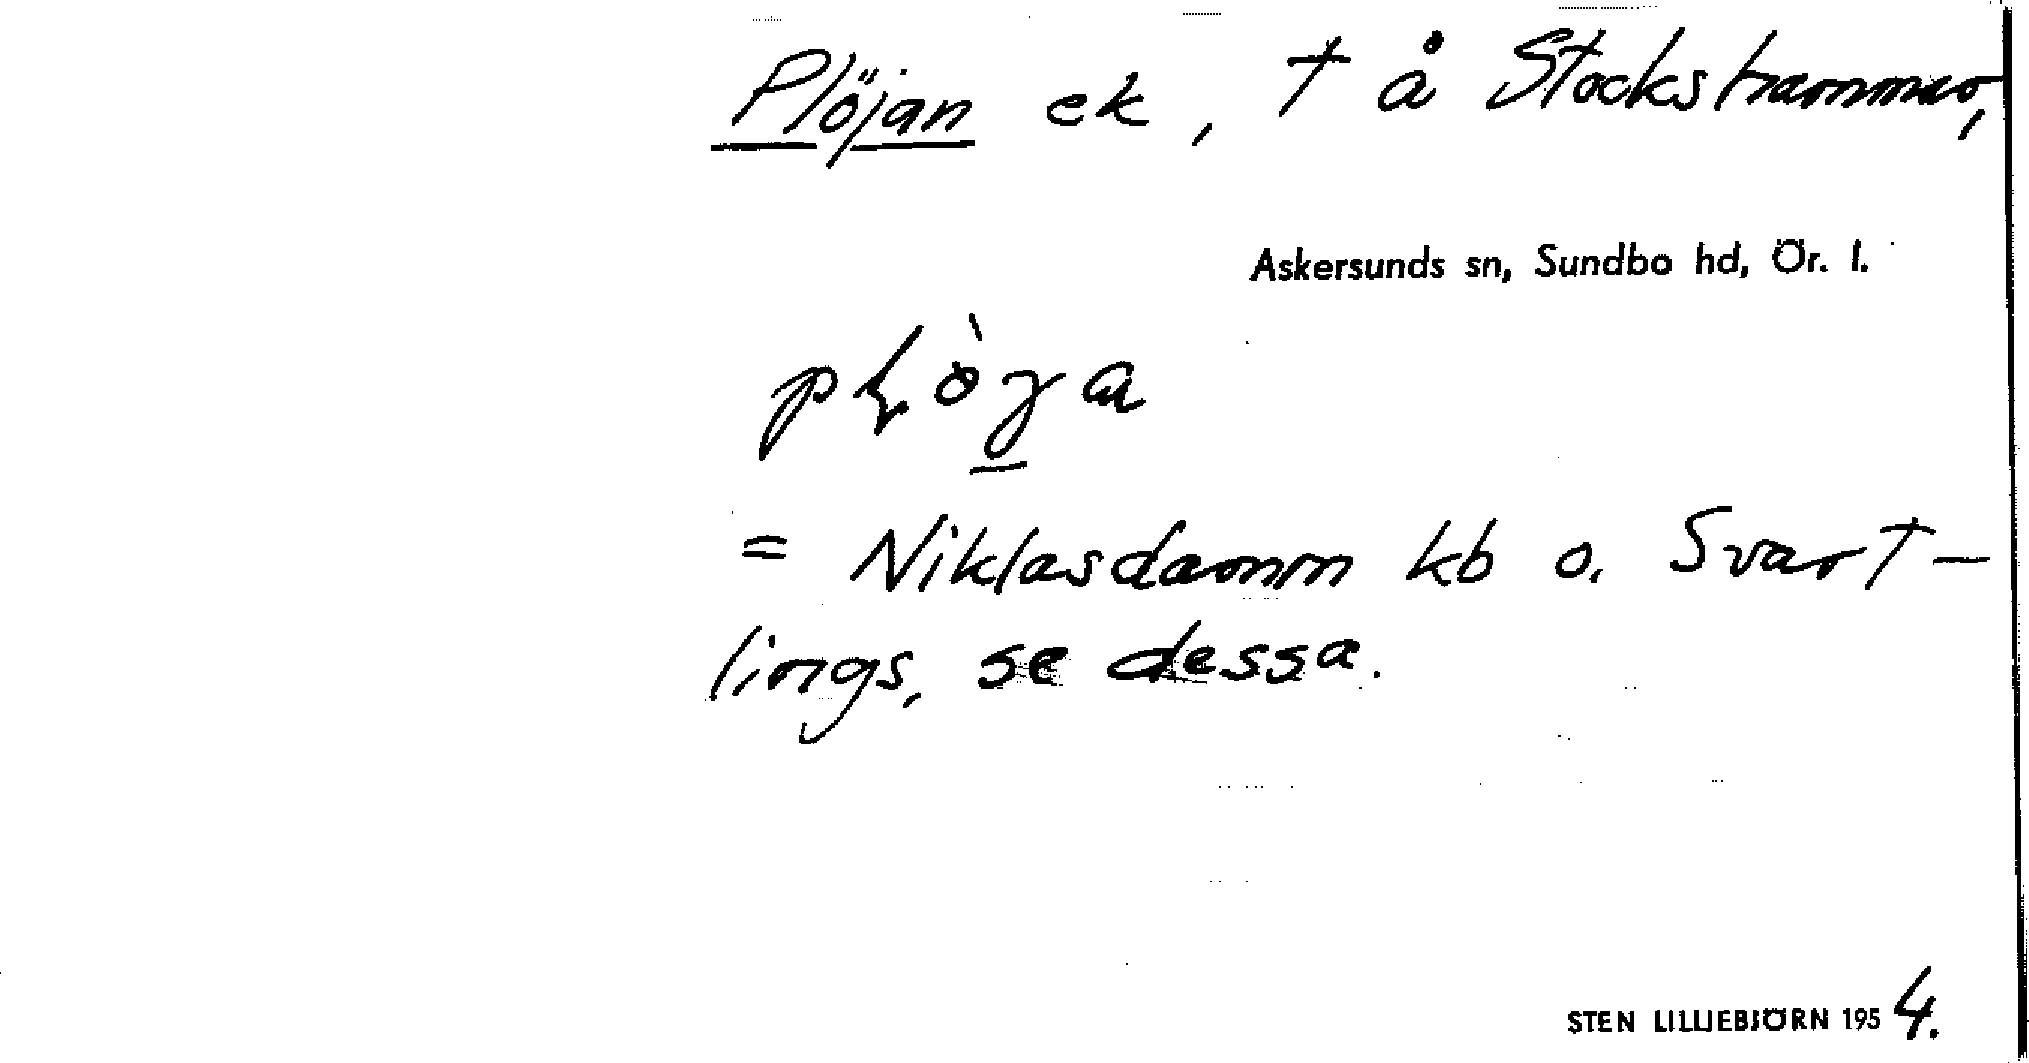 Plöjan ek, † å Stockshammar,
Askersunds sn, Sundbo hd, Ör. l.
= Niklasdamm kb o. Svart-
lings, se dessa.
STEN LILLIEBJÖRN 1954.